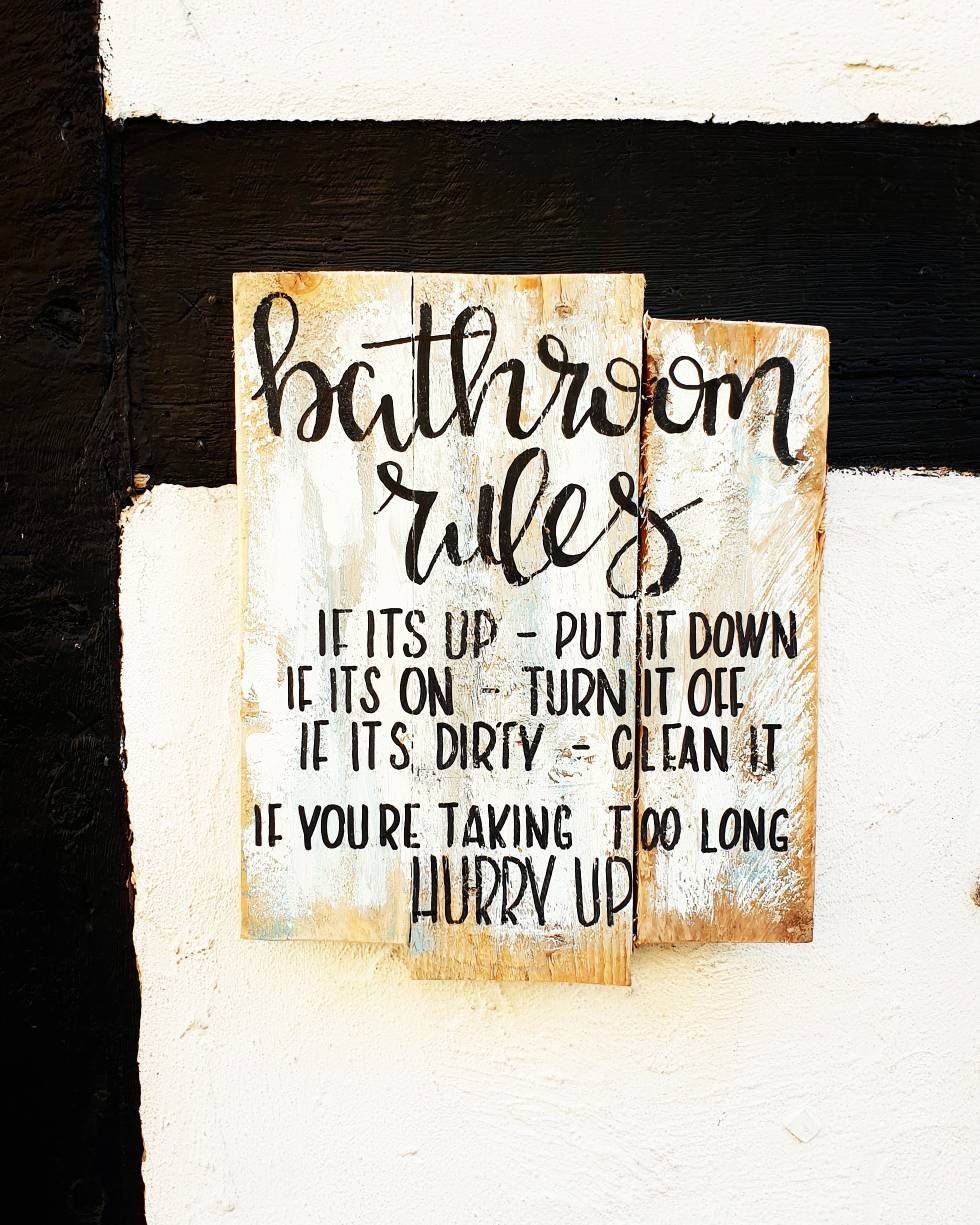 bathroom
rules
IF ITS UP - PUT IT DOWN
IF ITS ON - TURN IT OFF
IF ITS DIRTY - CLEAN IT
IF YOURE TAKING TOO LONG
HURRY UP